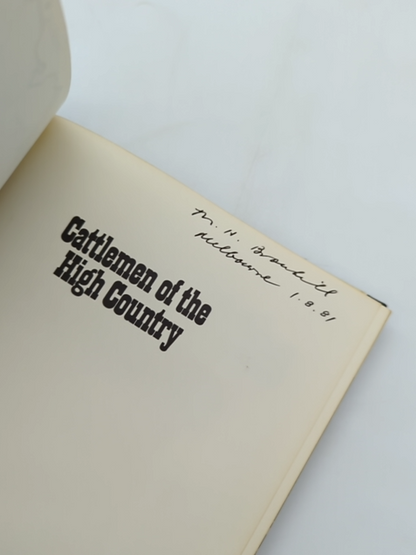 M. H.
Melbourne
1.8.81
Cattlemen of the
High Country